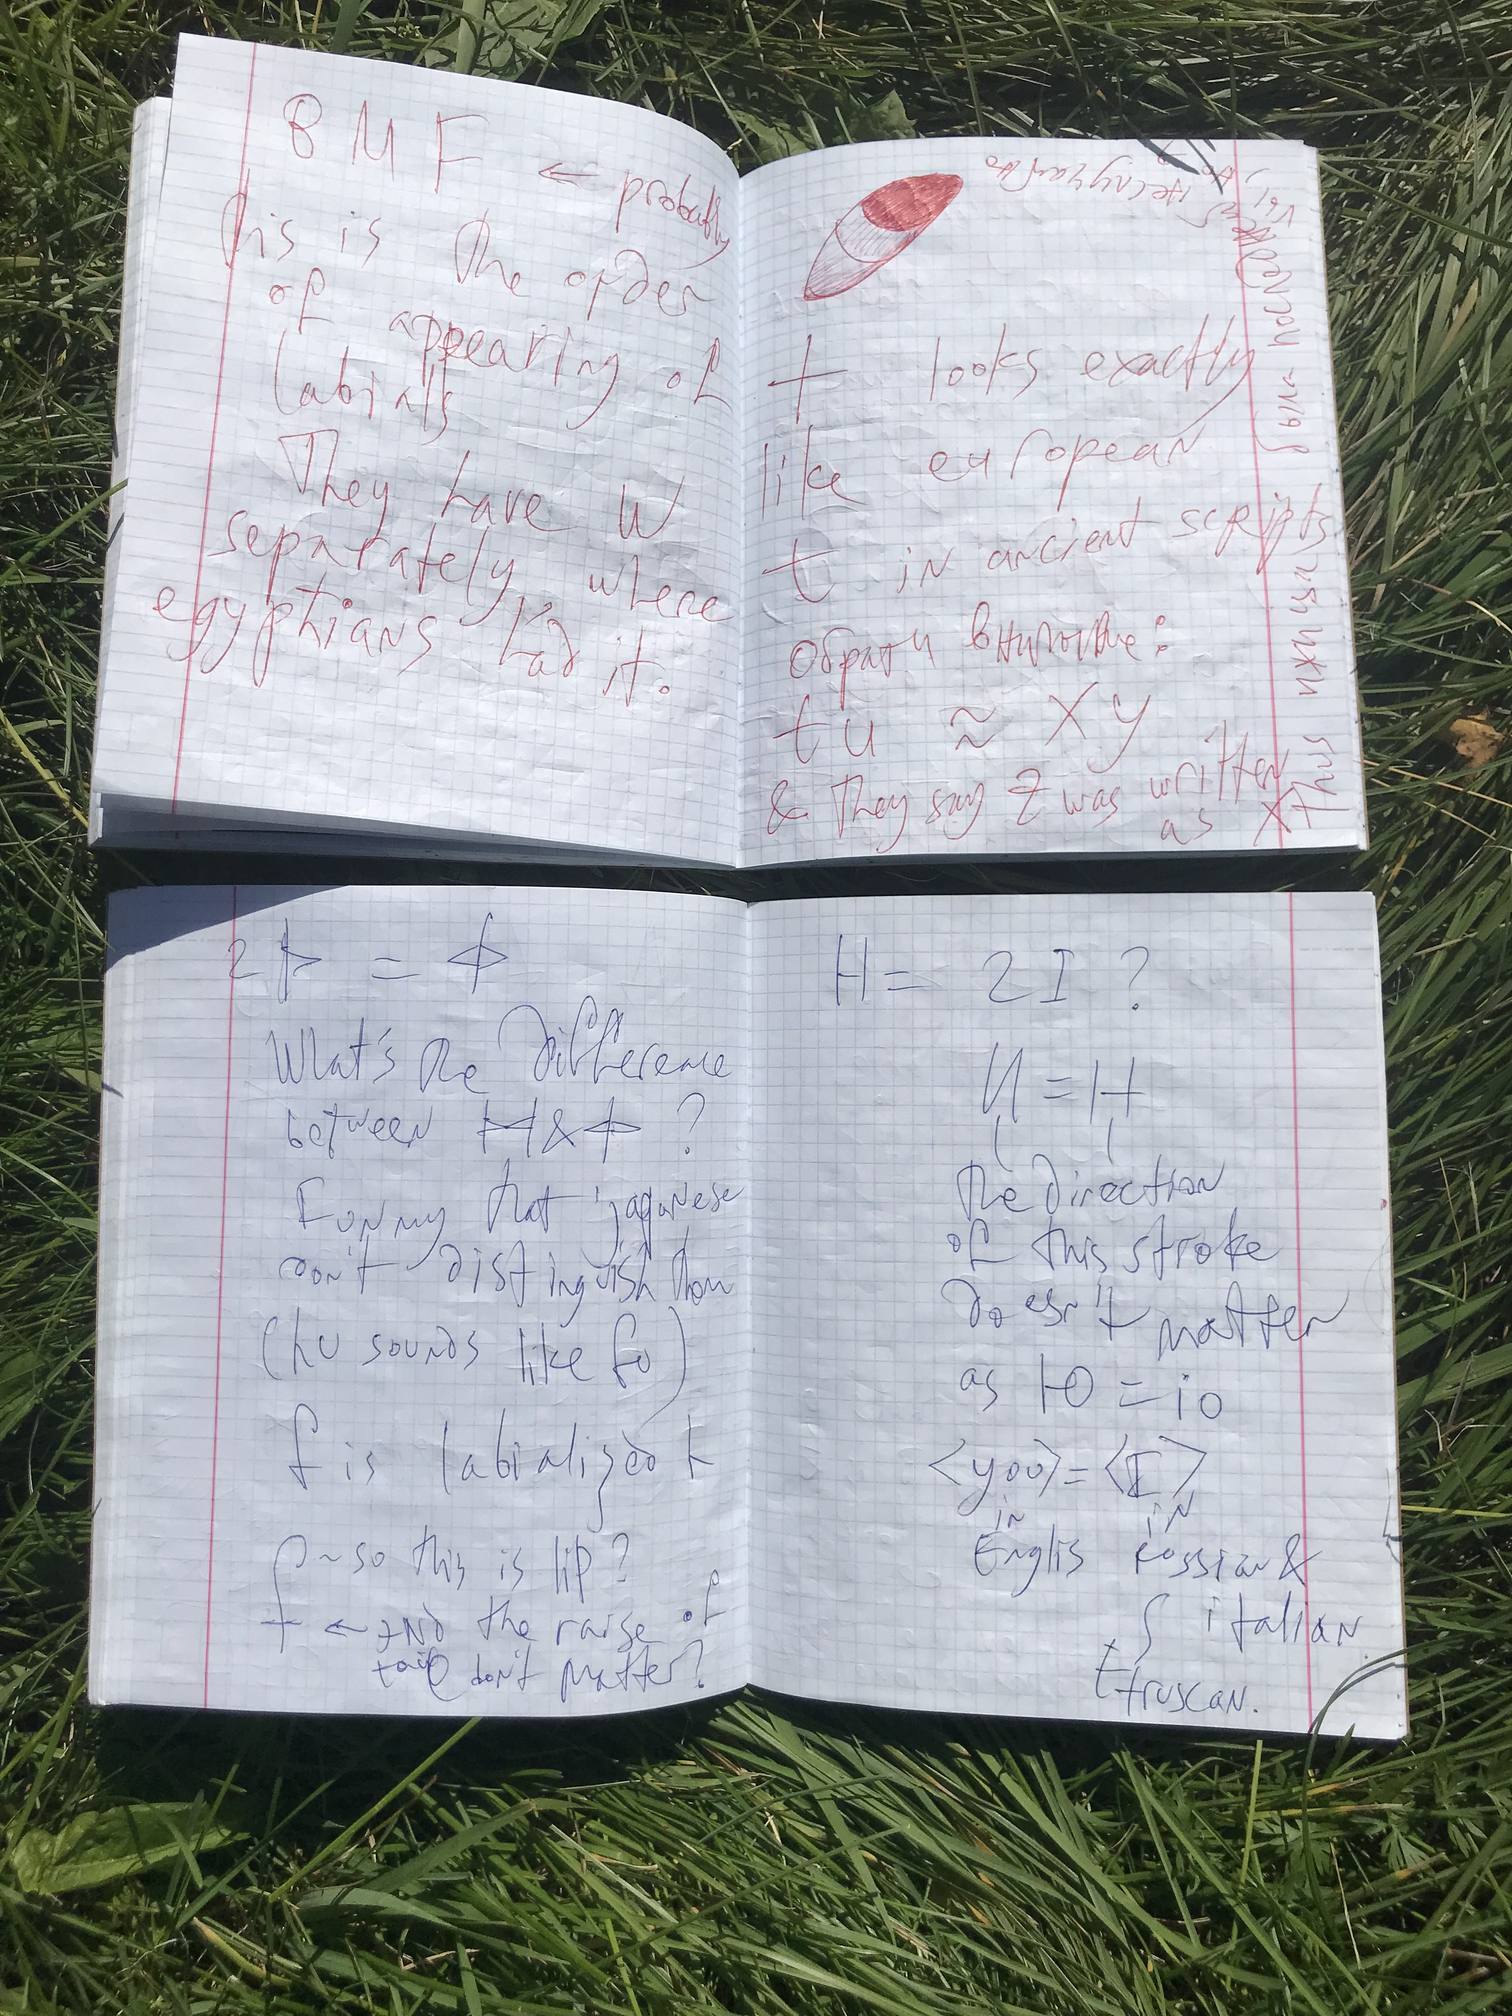 B M F ← probably
this is the order
of appearing of
labials
They have W
separately, where
egyptians had it.
t looks exactly
like european
t in ancient scripts
обрати внимание:
tu ≈ xy
& they say Z was written
as X
2Ͱ = ϕ
What's the difference
between & ϕ ?
Funny that japanese
don't distinguish them
(hu sounds like fu)
f is labialized h
f ~ so this is lip?
f ← and the raise of
tail don't matter?
H = 2 I ?
И = H
the direction
of this stroke
doesn't matter
as Ю = io
<you> = <I>
in in
Englis russian &
italian
Etruscan.